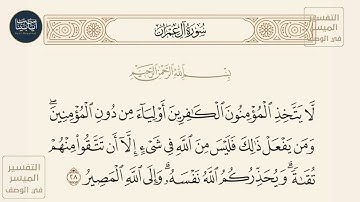 سُورَةُ آلِ عِمْرَانَ
التفسير
الميسر
في الوصف
بِسْمِ اللَّهِ الرَّحْمَٰنِ الرَّحِيمِ
لَّا يَتَّخِذِ الْمُؤْمِنُونَ الْكَافِرِينَ أَوْلِيَاءَ مِن دُونِ الْمُؤْمِنِينَ ۖ
وَمَن يَفْعَلْ ذَٰلِكَ فَلَيْسَ مِنَ اللَّهِ فِي شَيْءٍ إِلَّا أَن تَتَّقُوا مِنْهُمْ
تُقَاةً ۗ وَيُحَذِّرُكُمُ اللَّهُ نَفْسَهُ ۗ وَإِلَى اللَّهِ الْمَصِيرُ ٢٨
التفسير
الميسر
في الوصف